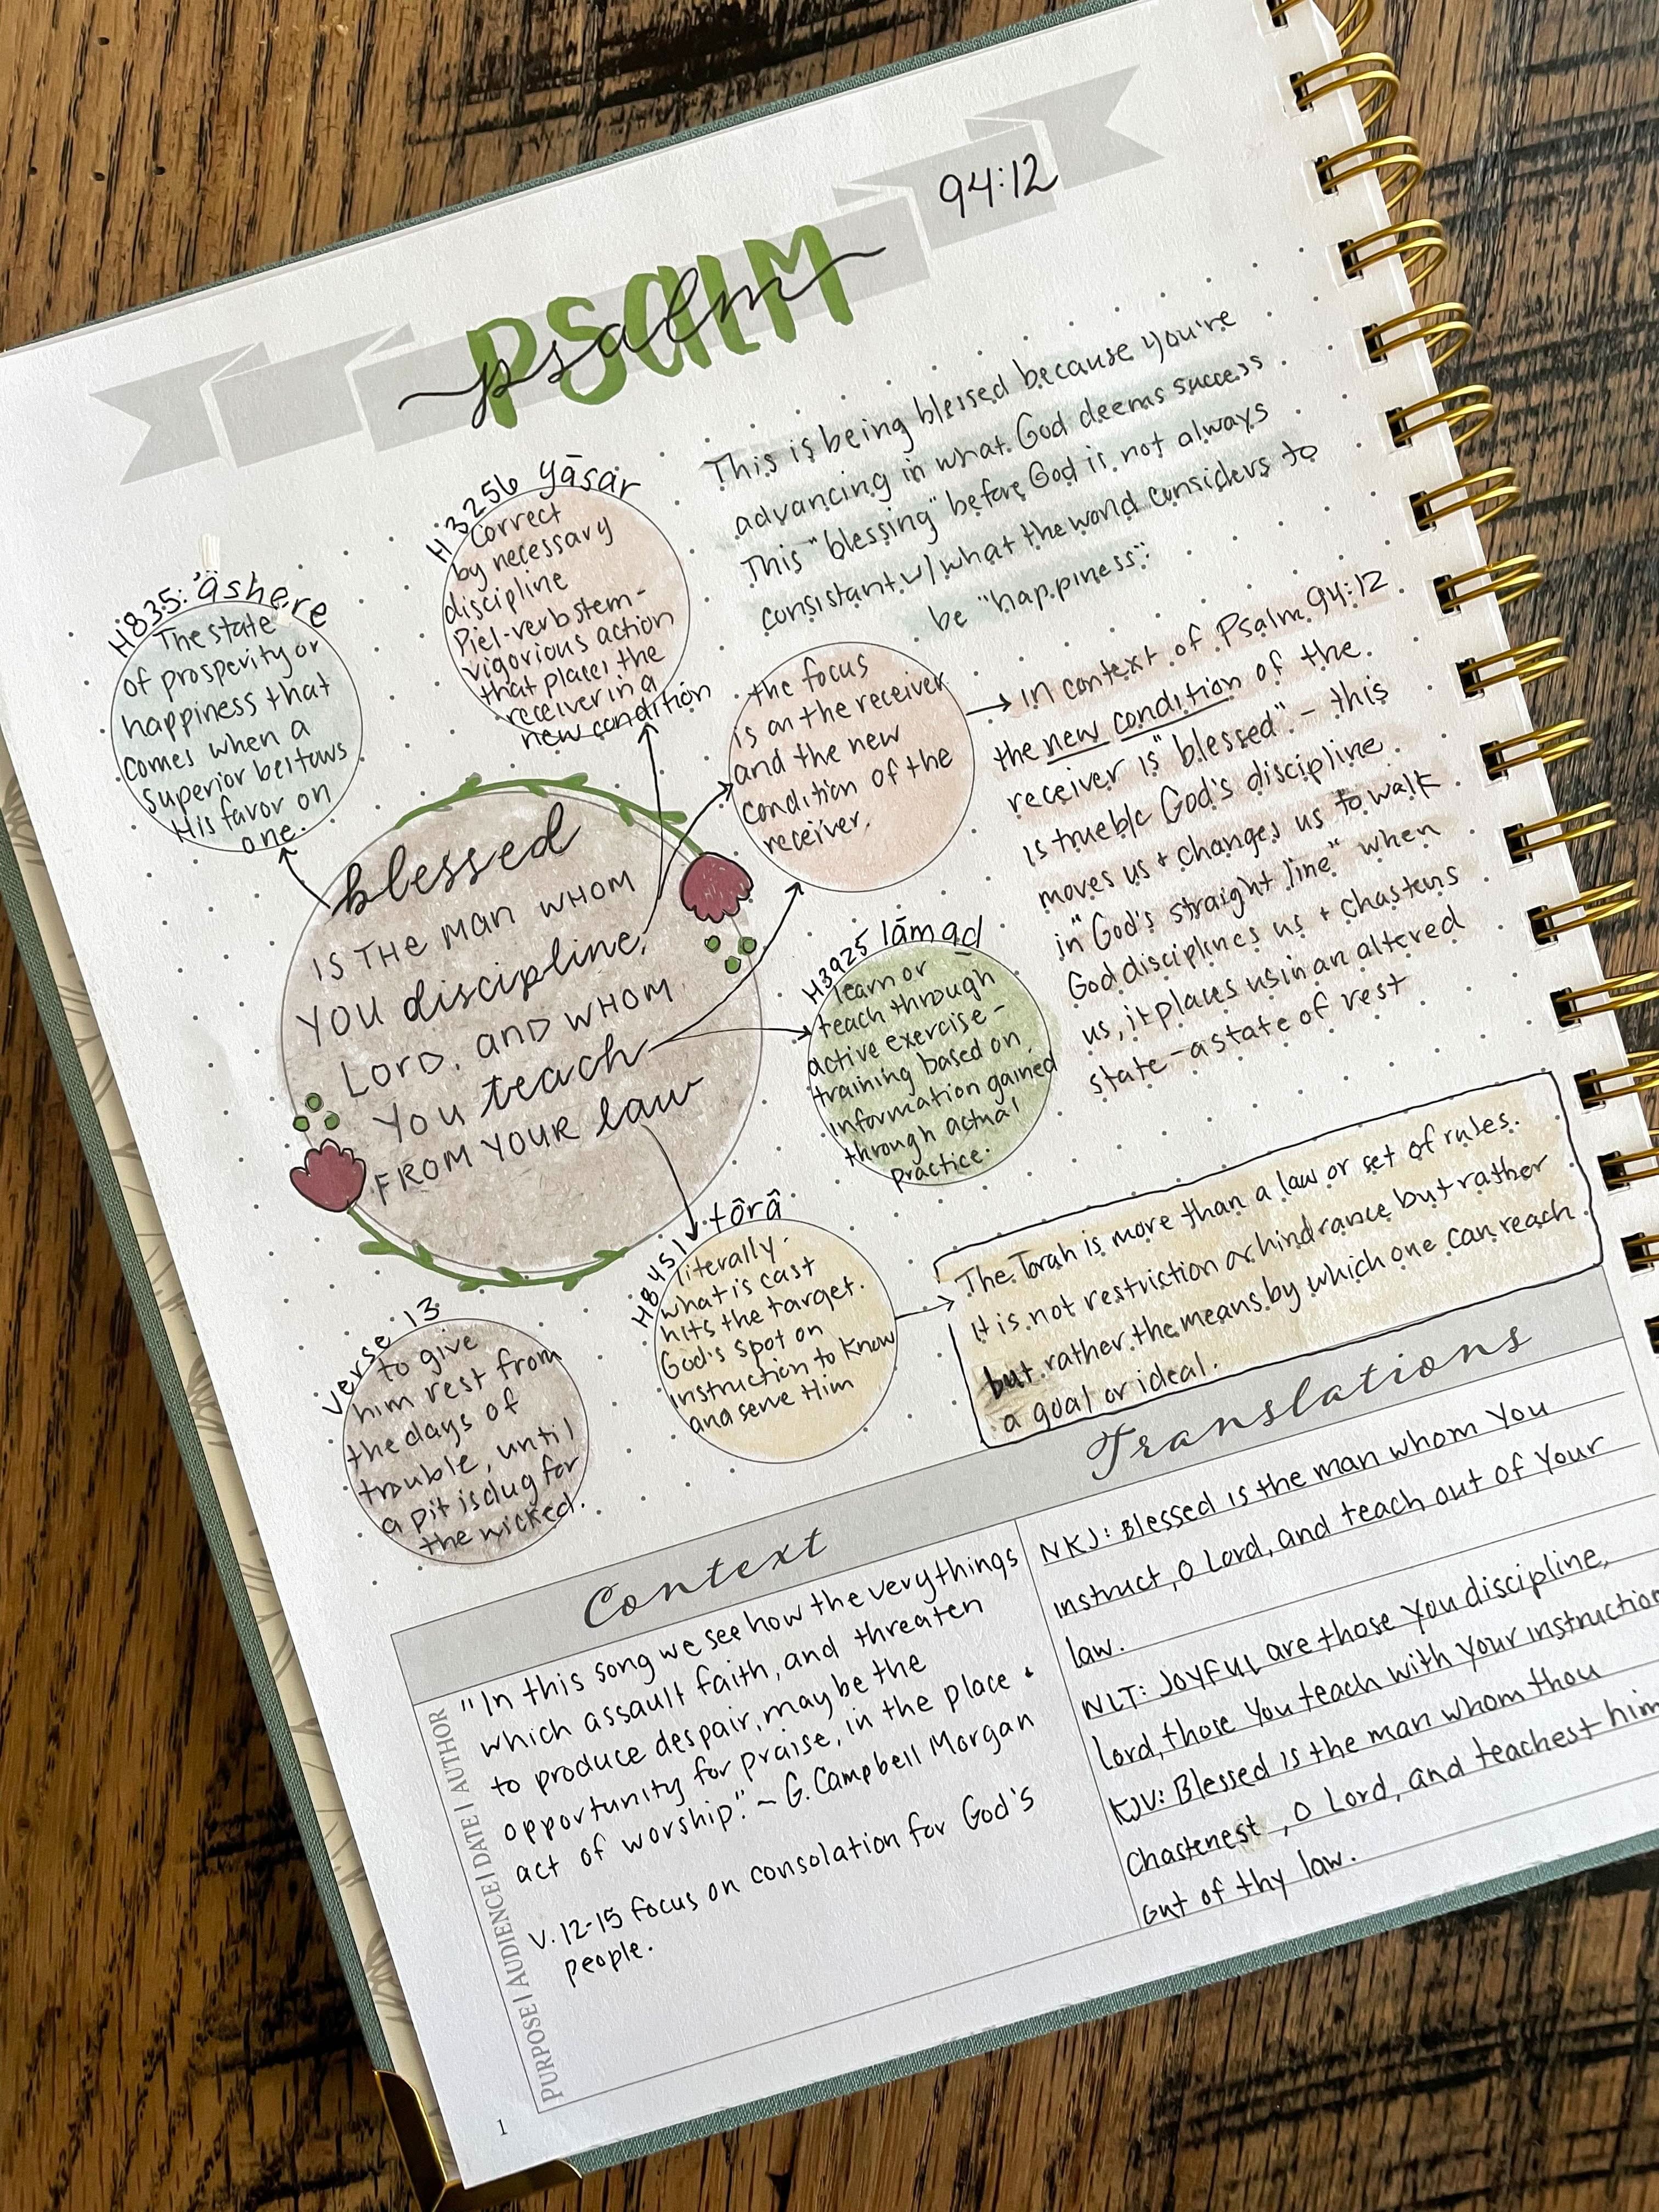 94:12
PSALM
psalm
This is being blessed because you're
advancing in what God deems success
This "blessing" before God is not always
consistant w/ what the world considers to
be "happiness".
H3256 yāsar
correct
by necessary
discipline
Piel-verb stem-
vigorious action
that places the
receiver in a
new condition
H835: 'ashere
The state
of prosperity or
happiness that
comes when a
superior bestows
His favor on
one.
the focus
is on the receiver
and the new
condition of the
receiver.
in context of Psalm 94:12
the new condition of the
receiver is "blessed" - this
is true b/c God's discipline
moves us + changes us to walk
in "God's straight line" when
God disciplines us + chastens
us, it places us in an altered
state - a state of rest
blessed
IS THE MAN WHOM
YOU discipline,
LORD, AND WHOM
YOU teach
FROM YOUR law
H3925 lāmad
learn or
teach through
active exercise -
training based on
information gained
through actual
practice.
H8451 tôrâ
literally-
what is cast
hits the target.
God's spot on
instruction to know
and serve Him
The Torah is more than a law or set of rules.
It is not restriction or hindrance but rather
but rather the means by which one can reach
a goal or ideal.
verse 13
to give
him rest from
the days of
trouble, until
a pit is dug for
the wicked.
Context
"In this song we see how the very things
which assault faith, and threaten
to produce despair, may be the
opportunity for praise, in the place +
act of worship." ~ G. Campbell Morgan
V. 12-15 focus on consolation for God's
people.
PURPOSE | AUDIENCE | DATE | AUTHOR
Translations
NKJ: Blessed is the man whom You
instruct, O Lord, and teach out of Your
law.
NLT: JOYFUL are those You discipline,
Lord, those You teach with Your instruction
KJV: Blessed is the man whom thou
Chastenest, O Lord, and teachest him
out of thy law.
1